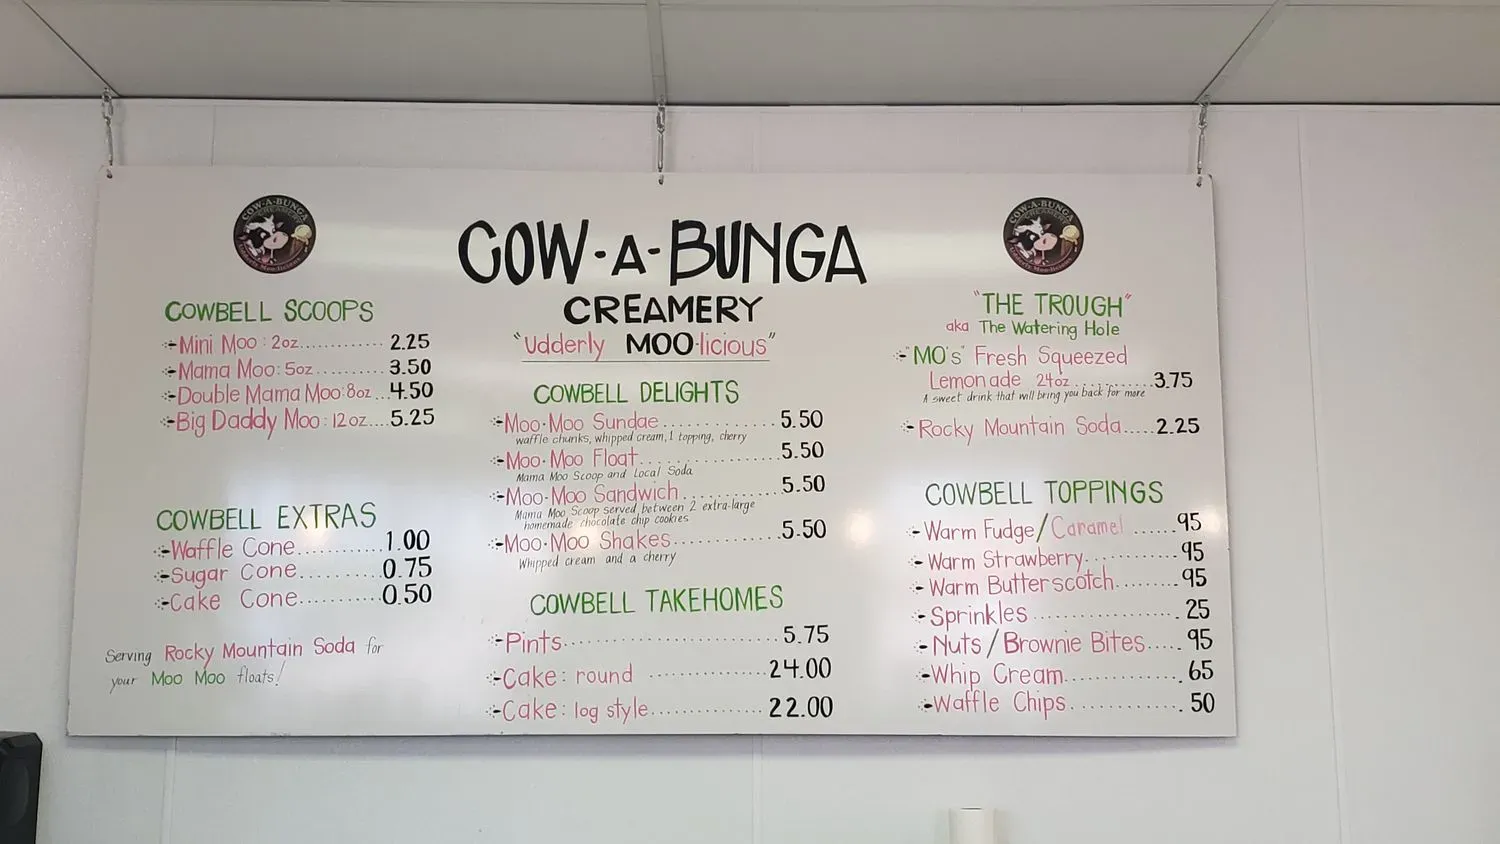 COW-A-BUNGA
CREAMERY
"Udderly MOO-licious"
COW-A-BUNGA
CREAMERY
COWBELL SCOOPS
Mini Moo: 2oz............ 2.25
Mama Moo: 5oz.......... 3.50
Double Mama Moo: 8oz...4.50
Big Daddy Moo: 12oz....5.25
COWBELL EXTRAS
Waffle Cone............1.00
Sugar Cone...........0.75
Cake Cone...........0.50
Serving Rocky Mountain Soda for
your Moo Moo floats!
COWBELL DELIGHTS
Moo-Moo Sundae ............ 5.50
waffle chunks, whipped cream, 1 topping, cherry
Moo-Moo Float.............. 5.50
Mama Moo Scoop and Local Soda
Moo-Moo Sandwich ......... 5.50
Mama Moo Scoop served between 2 extra-large
homemade chocolate chip cookies
Moo-Moo Shakes...........5.50
Whipped cream and a cherry
COWBELL TAKEHOMES
Pints.......................... 5.75
Cake: round ..............24.00
Cake: log style..............22.00
COW-A-BUNGA
CREAMERY
"THE TROUGH"
aka The Watering Hole
"MO's" Fresh Squeezed
Lemonade 24oz..........3.75
A sweet drink that will bring you back for more
Rocky Mountain Soda.....2.25
COWBELL TOPPINGS
Warm Fudge/Caramel ......95
Warm Strawberry............95
Warm Butterscotch........95
Sprinkles ..................25
Nuts/Brownie Bites.....95
Whip Cream..............65
Waffle Chips............. 50